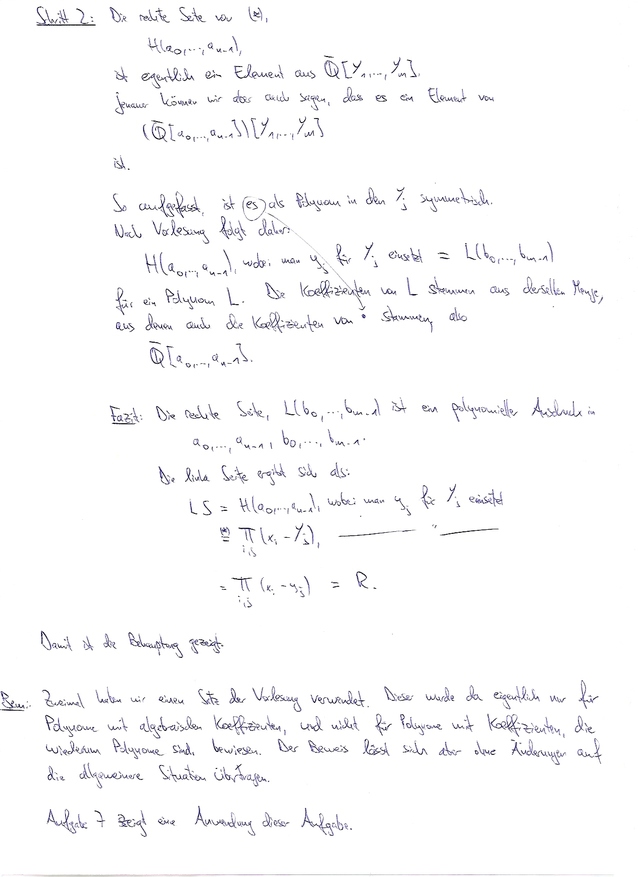 Schritt 2: Die rechte Seite von (*),
H(a₀,...,aₙ₋₁),
ist eigentlich ein Element aus Q̄[Y₁,...,Yₘ].
Genauer können wir aber auch sagen, dass es ein Element von
(Q̄[a₀,...,aₙ₋₁])[Y₁,...,Yₘ]
ist.
So aufgefasst, ist es als Polynom in den Yⱼ symmetrisch.
Nach Vorlesung folgt daher:
H(a₀,...,aₙ₋₁), wobei man yⱼ für Yⱼ einsetzt = L(b₀,...,bₘ₋₁)
für ein Polynom L. Die Koeffizienten von L stammen aus derselben Menge,
aus denen auch die Koeffizienten von stammen, also
Q̄[a₀,...,aₙ₋₁].
Fazit: Die rechte Seite, L(b₀,...,bₘ₋₁) ist ein polynomieller Ausdruck in
a₀,...,aₙ₋₁, b₀,...,bₘ₋₁.
Die linke Seite ergibt sich als:
LS = H(a₀,...,aₙ₋₁), wobei man yⱼ für Yⱼ einsetzt
(*) = ∏ i,j (xᵢ - Yⱼ), — " —
= ∏ i,j (xᵢ - yⱼ) = R.
Damit ist die Behauptung gezeigt.
Bem.: Zweimal haben wir einen Satz der Vorlesung verwendet. Dieser wurde da eigentlich nur für
Polynome mit algebraischen Koeffizienten, und nicht für Polynome mit Koeffizienten, die
wiederum Polynome sind, bewiesen. Der Beweis lässt sich aber ohne Änderungen auf
die allgemeinere Situation übertragen.
Aufgabe 7 zeigt eine Anwendung dieser Aufgabe.